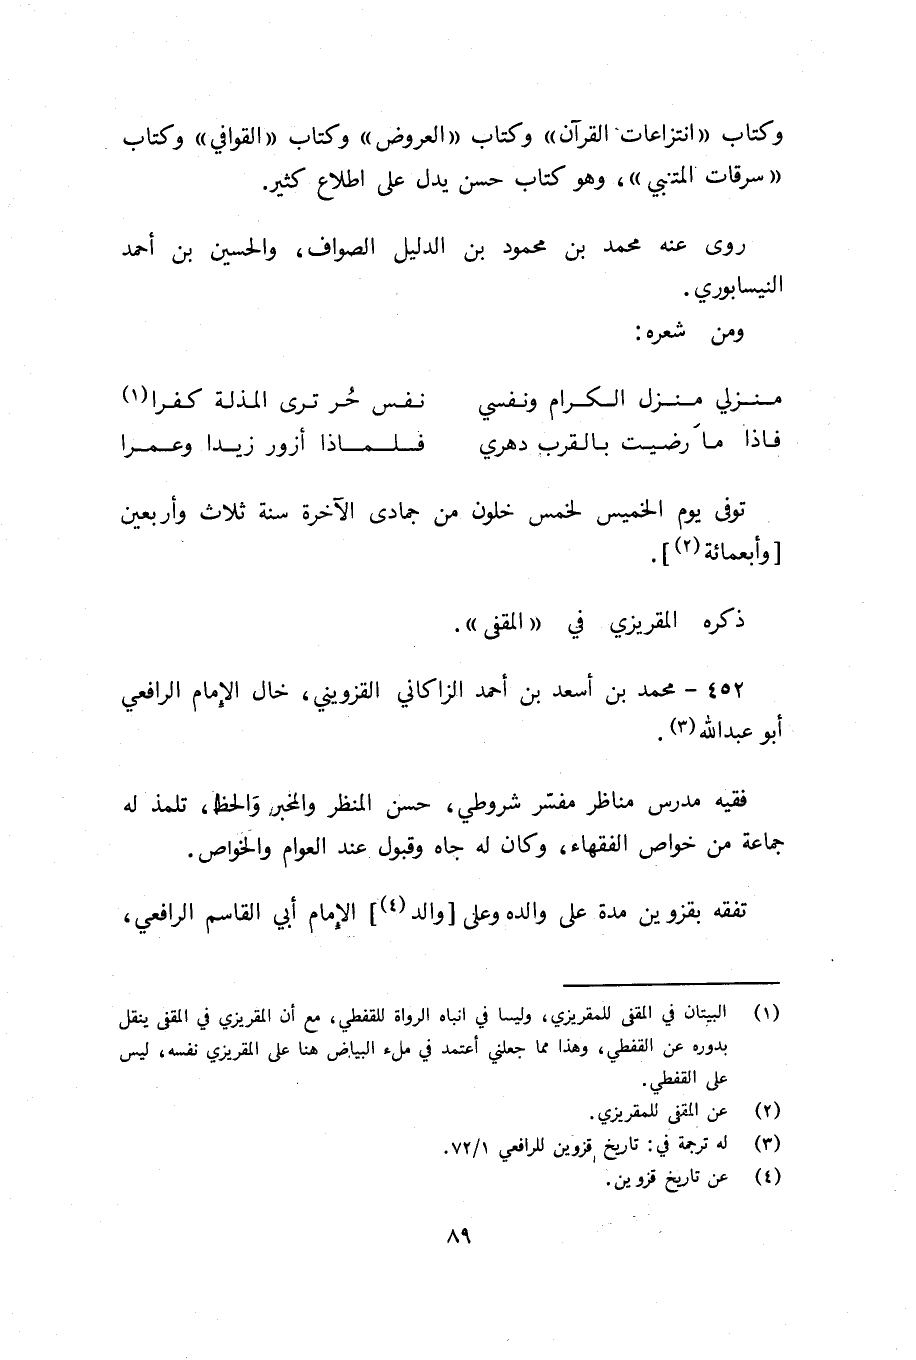 وكتاب «انتزاعات القرآن» وكتاب «العروض» وكتاب «القوافي» وكتاب
«سرقات المتنبي»، وهو كتاب حسن يدل على اطلاع كثير.
روى عنه محمد بن محمود بن الدليل الصواف، والحسين بن أحمد
النيسابوري.
ومن شعره:
منزلي منزل الكرام ونفسي نفس حُر ترى المذلة كفرا(١)
فاذا ما رضيت بالقرب دهري فلماذا أزور زيدا وعمرا
توفى يوم الخميس لخمس خلون من جمادى الآخرة سنة ثلاث وأربعين
[وأبعمائة(٢)].
ذكره المقريزي في «المقفى».
٤٥٢ - محمد بن أسعد بن أحمد الزاكاني القزويني، خال الإمام الرافعي
أبو عبدالله(٣).
فقيه مدرس مناظر مفسّر شروطي، حسن المنظر والمخبر والحظ، تلمذ له
جماعة من خواص الفقهاء، وكان له جاه وقبول عند العوام والخواص.
تفقه بقزوين مدة على والده وعلى [والد(٤)] الإمام أبي القاسم الرافعي،
(١) البيتان في المقفى للمقريزي، وليسا في انباه الرواة للقفطي، مع أن المقريزي في المقفى ينقل
بدوره عن القفطي، وهذا مما جعلني أعتمد في ملء البياض هنا على المقريزي نفسه، ليس
على القفطي.
(٢) عن المقفى للمقريزي.
(٣) له ترجمة في: تاريخ قزوين للرافعي ٧٢/١.
(٤) عن تاريخ قزوين.
٨٩